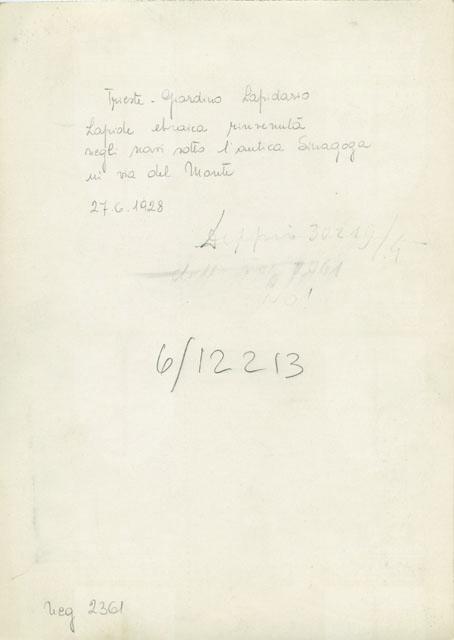 Trieste - Giardino Lapidario
Lapide ebraica rinvenuta
negli scavi sotto l'antica Sinagoga
in via del Monte
27.6.1928
Doppio 30219/
NO!
6/12213
Neg 2361